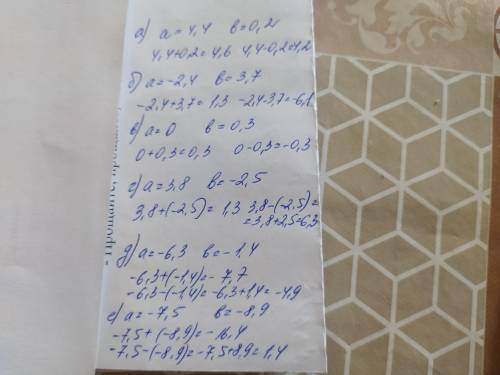 а) a = 4,4 в = 0,2
4,4+0,2 = 4,6 4,4-0,2=4,2
б) a = -2,4 в = 3,7
-2,4+3,7 = 1,3 -2,4-3,7=-6,1
в) a = 0 в = 0,3
0+0,3=0,3 0-0,3=-0,3
г) a = 3,8 в = -2,5
3,8+(-2,5) = 1,3 3,8-(-2,5)=
=3,8+2,5=6,3
д) a=-6,3 в = -1,4
-6,3+(-1,4)=-7,7
-6,3-(-1,4)=-6,3+1,4=-4,9
е) a = -7,5 в = -8,9
-7,5+(-8,9)=-16,4
-7,5-(-8,9)=-7,5+8,9=1,4
- Прощайте,